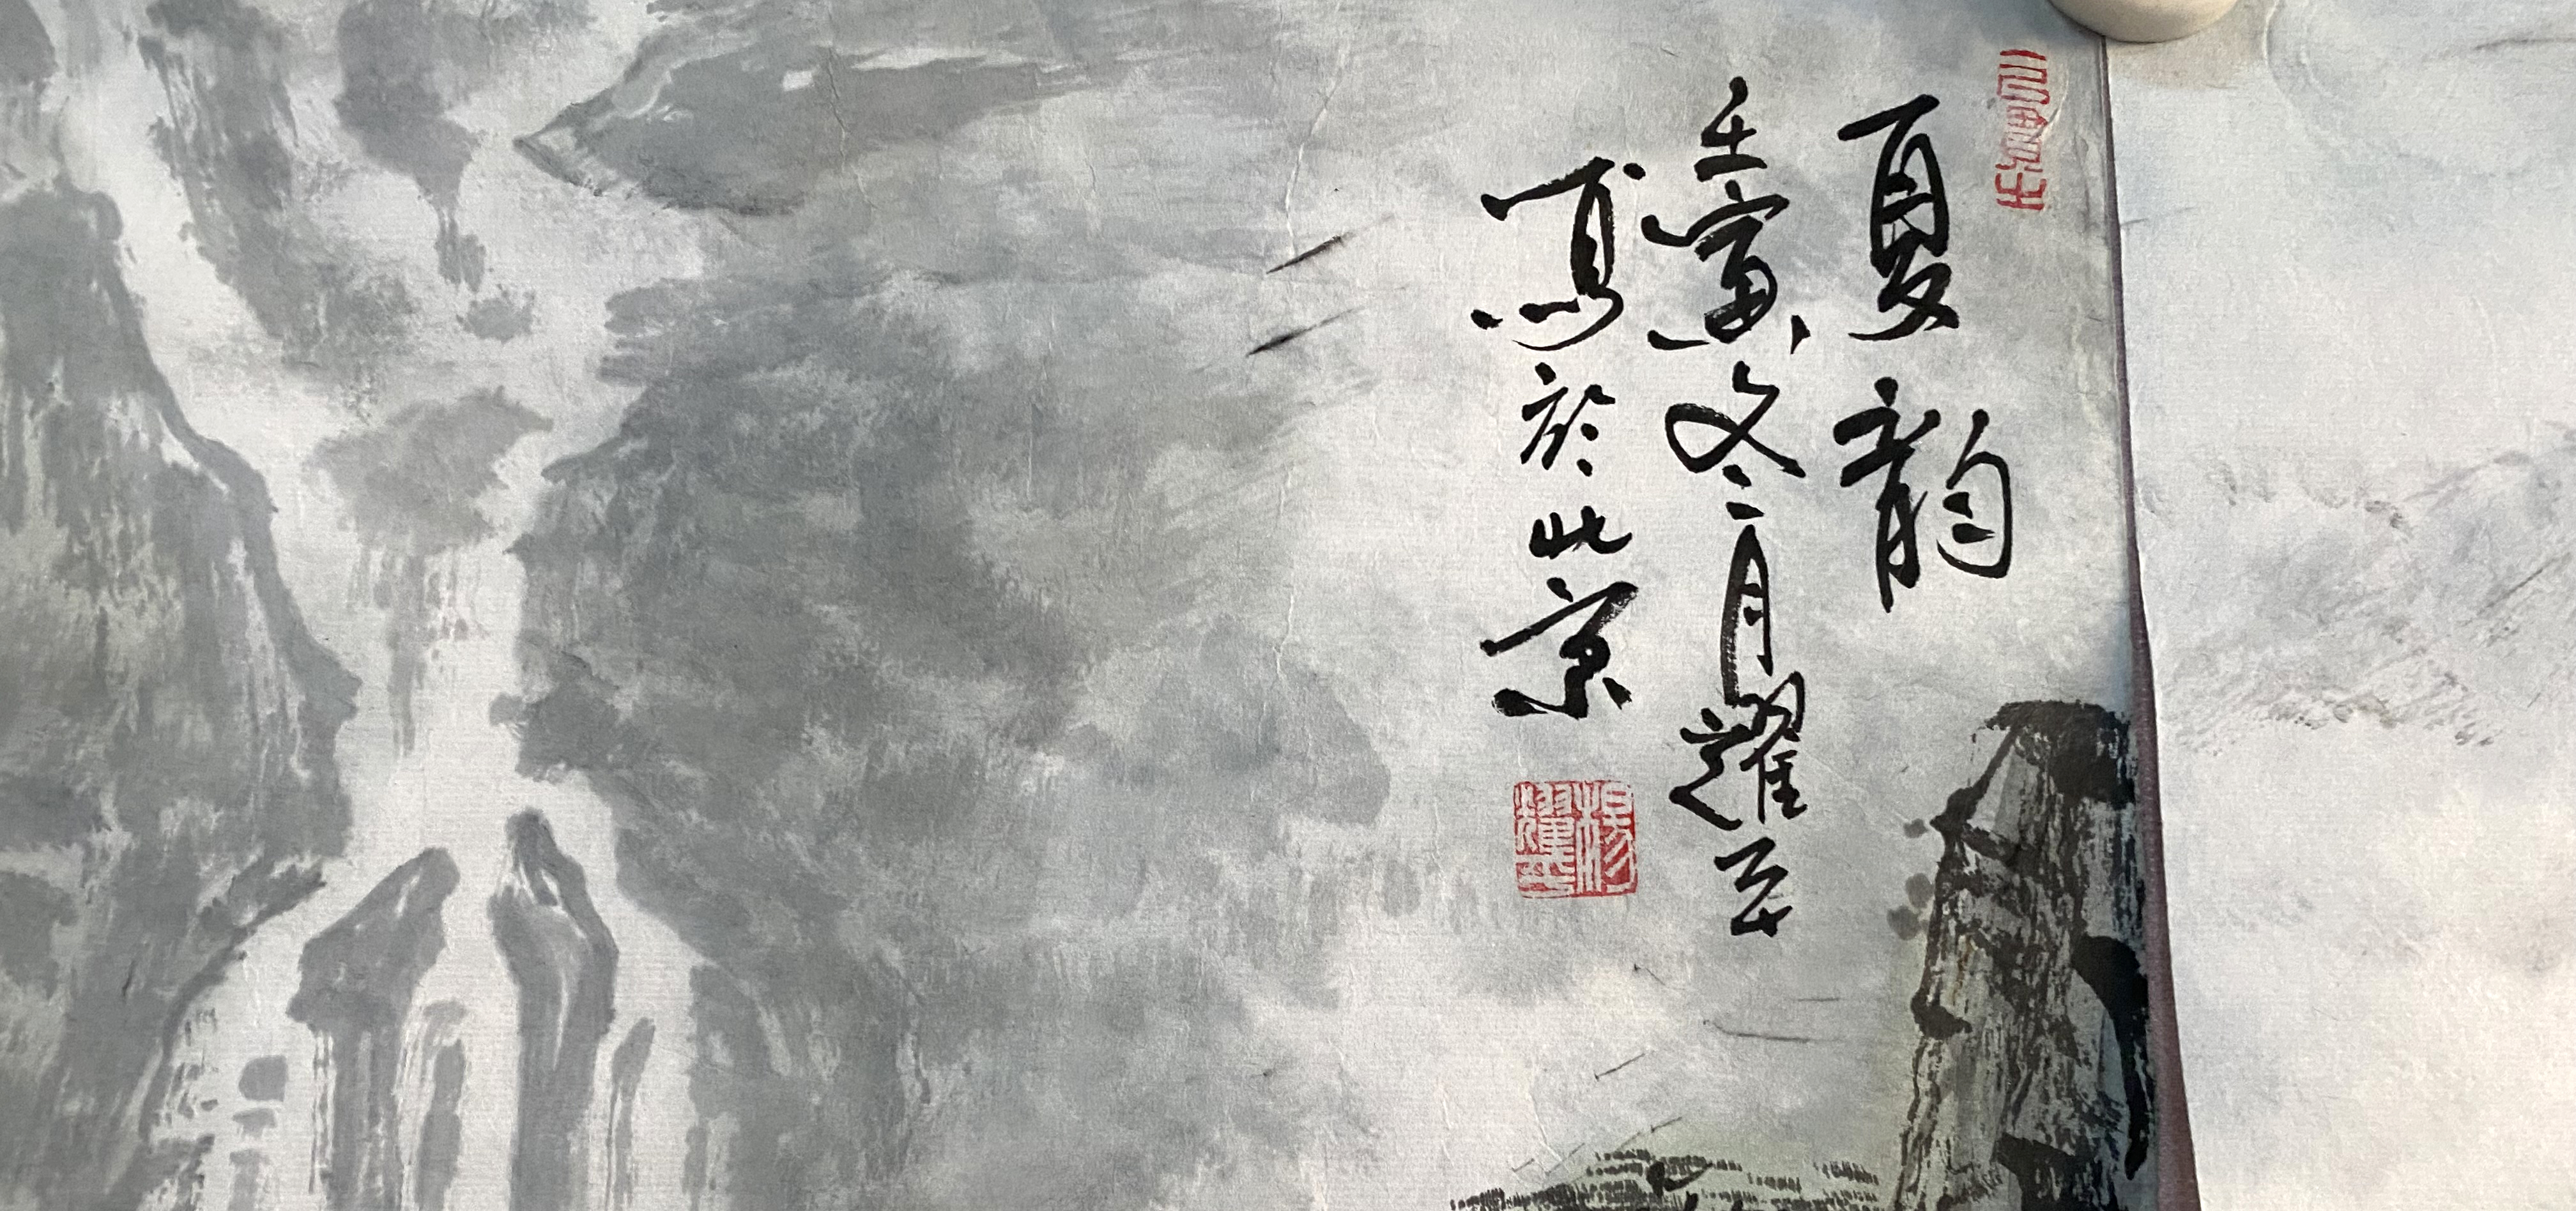 夏韵
壬寅冬月耀平
寫於北京